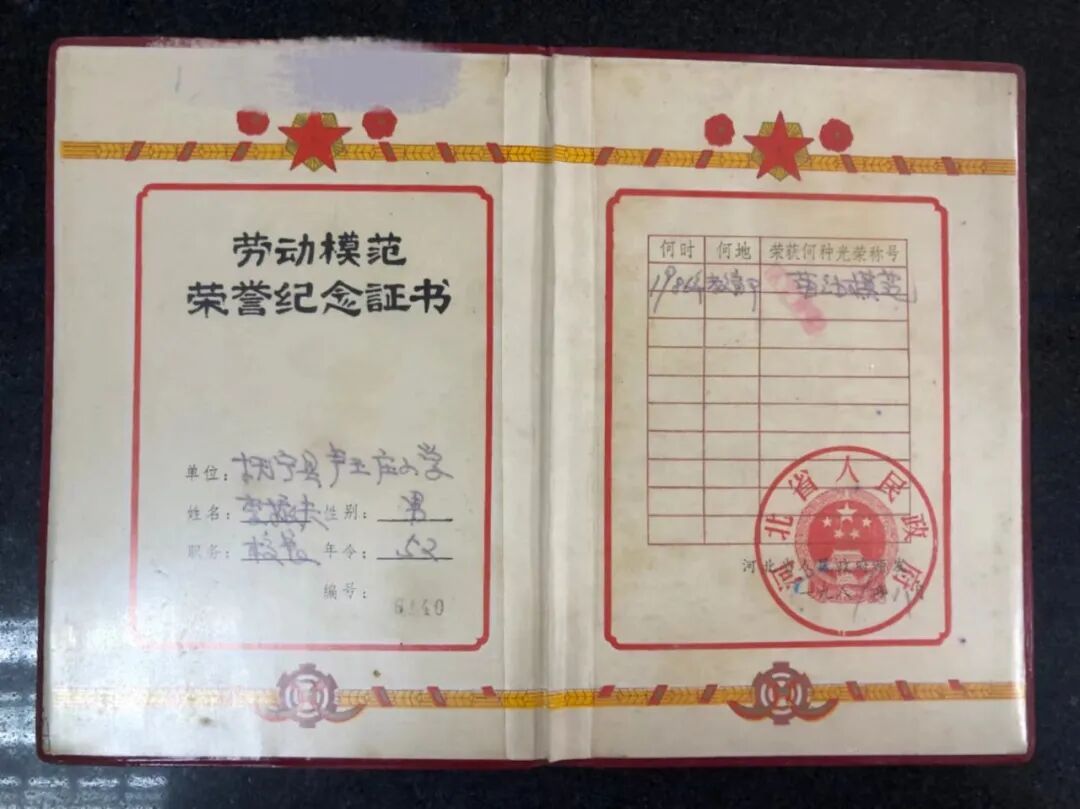 劳动模范
荣誉纪念証书
单位：抚宁县芦王庄小学
姓名： 性别：男
职务：校长 年令：52
编号：
6240
何时 何地 荣获何种光荣称号
1986年 劳动模范
河北省人民政府
河北省人民政府颁发
一九八